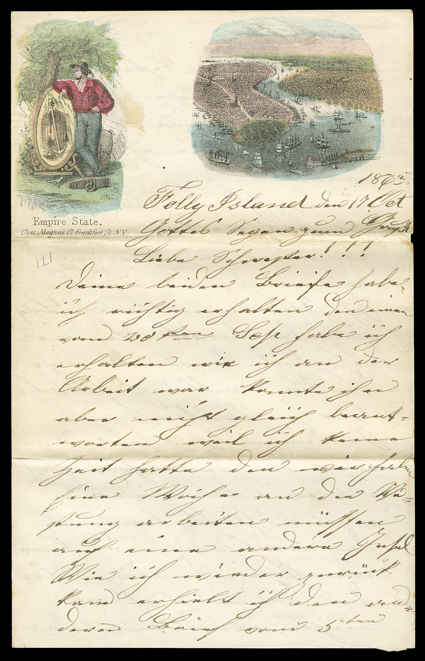 1863
Folly Island den 17 Oct
Empire State.
Chas. Magnus 12 Frankfort St. N.Y.
Gottes Segen zum Gruß
121
Liebe Schwester!!!
Deine beiden Briefe habe
ich richtig erhalten den einen
vom 20ten Sept habe ich
erhalten wie ich an der
Arbeit war konnte ihn
aber nicht gleich beant-
worten weil ich keine
Zeit hatte den wir haben
eine Woche an die Ve-
stung arbeiten müssen
auf eine andere Insel
Wie ich wieder zurück
kam erhielt ich den an-
dern Brief vom 5ten